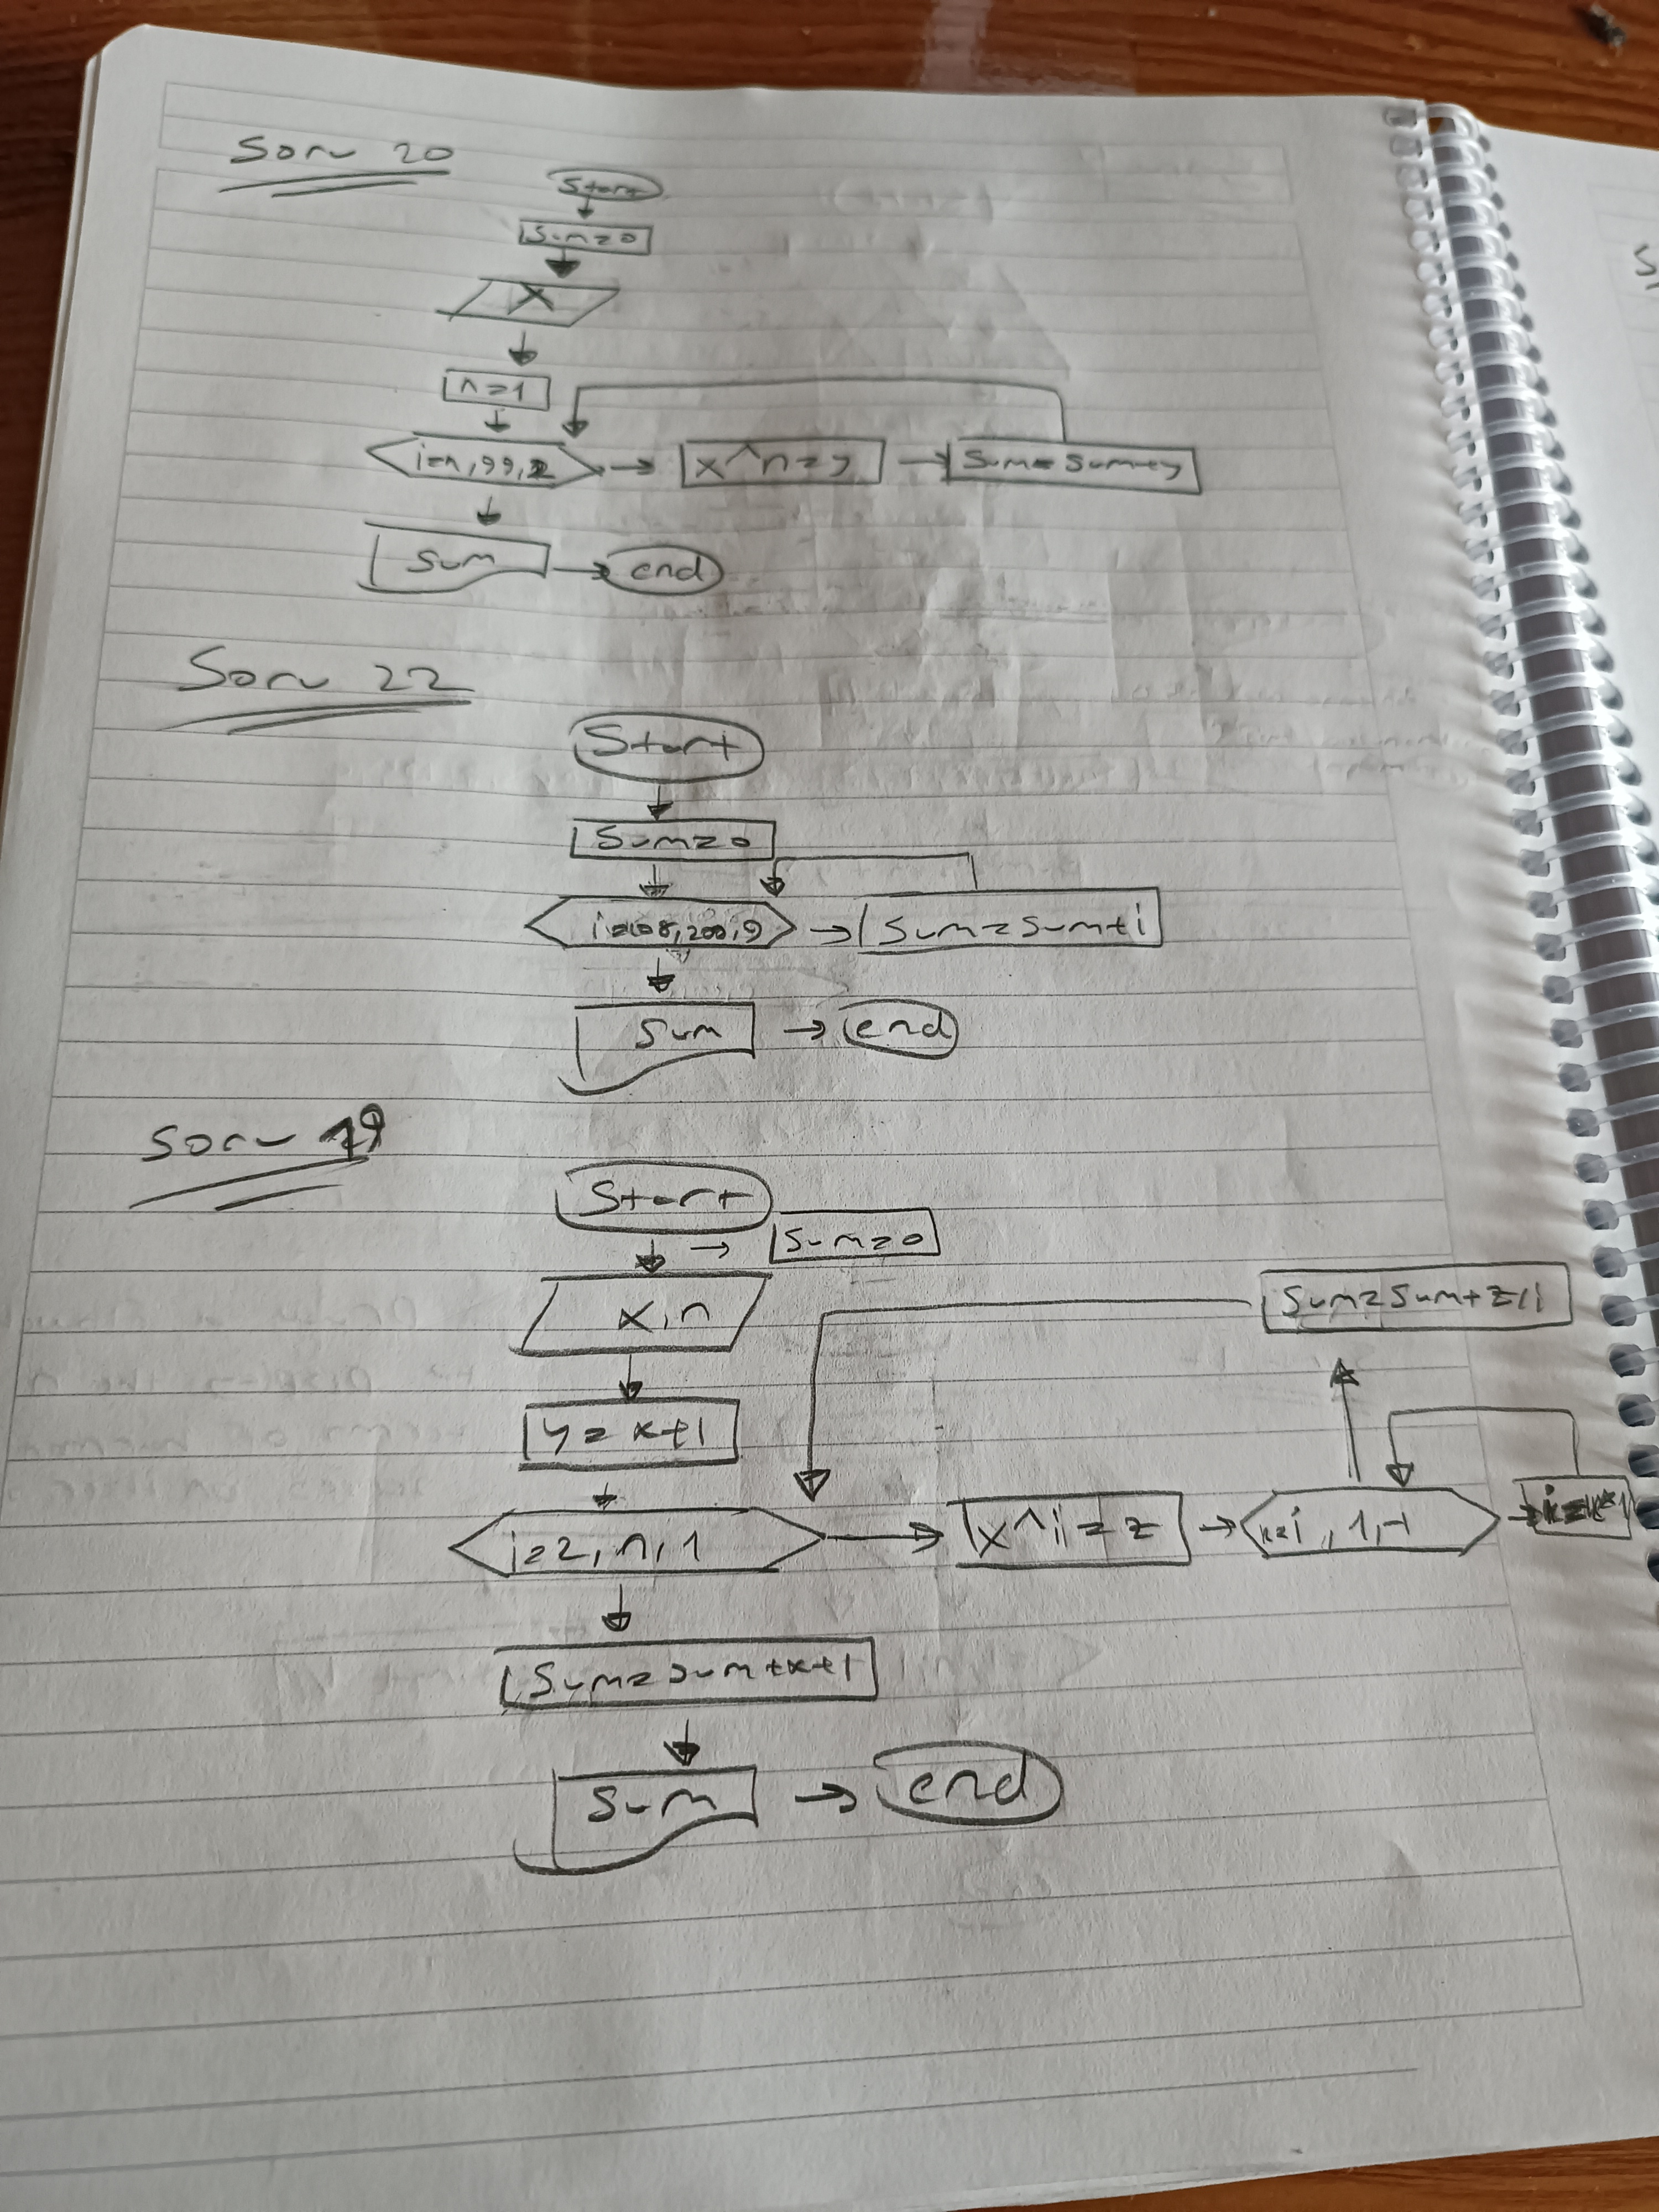 Soru 20
Start
Sum=0
X
n=1
i=n,99,2
x^n=y
Sum=Sum+y
Sum
end
Soru 22
Start
Sum=0
i=108,200,9
Sum=Sum+i
Sum
end
Soru 19
Start
Sum=0
x,n
Sum=Sum+z/i
y=x+1
i=2,n,1
x^i=z
k=i,1,-1
Sum=Sum+x+1
Sum
end